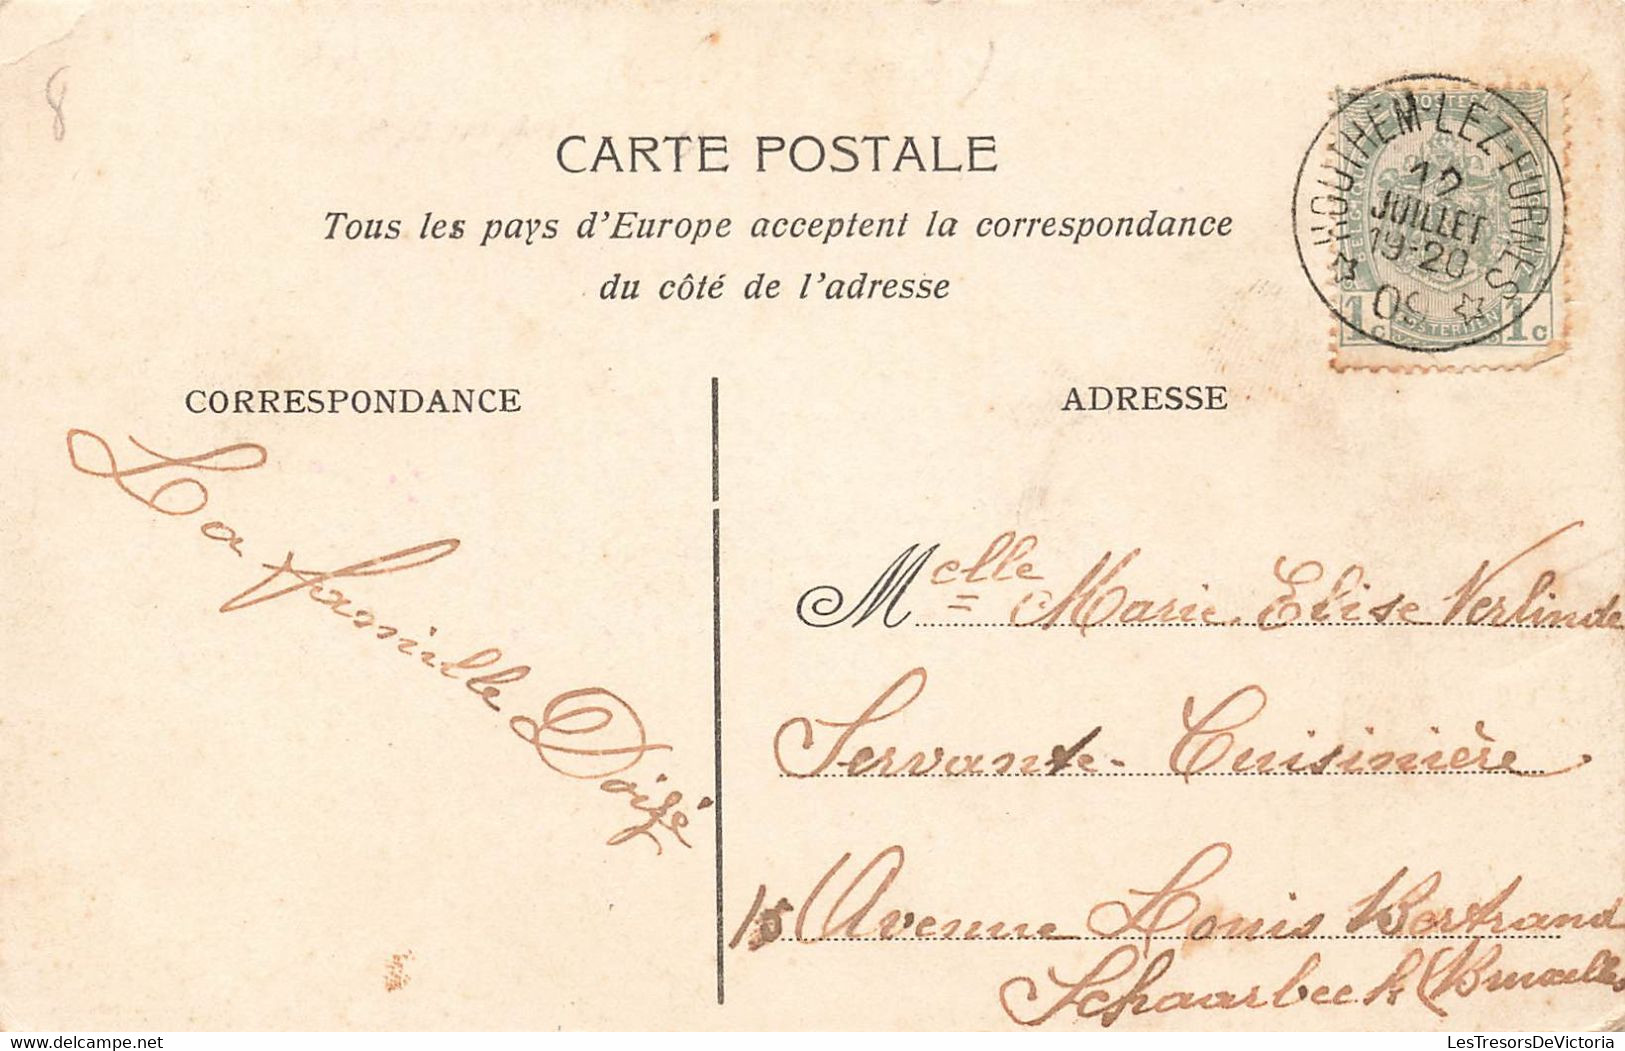 8
CARTE POSTALE
Tous les pays d'Europe acceptent la correspondance
du côté de l'adresse
HOUTHEM-LEZ-FURNES
12
JUILLET
19-20
09
POSTES
BELGIQUE
POSTERIJEN
1c 1c
CORRESPONDANCE
ADRESSE
La famille Doizé
Melle Marie Elise Verlinde
Servante-Cuisinière
15 Avenue Louis Bertrand
Schaarbeek (Bruxelles
LesTresorsDeVictoria.com